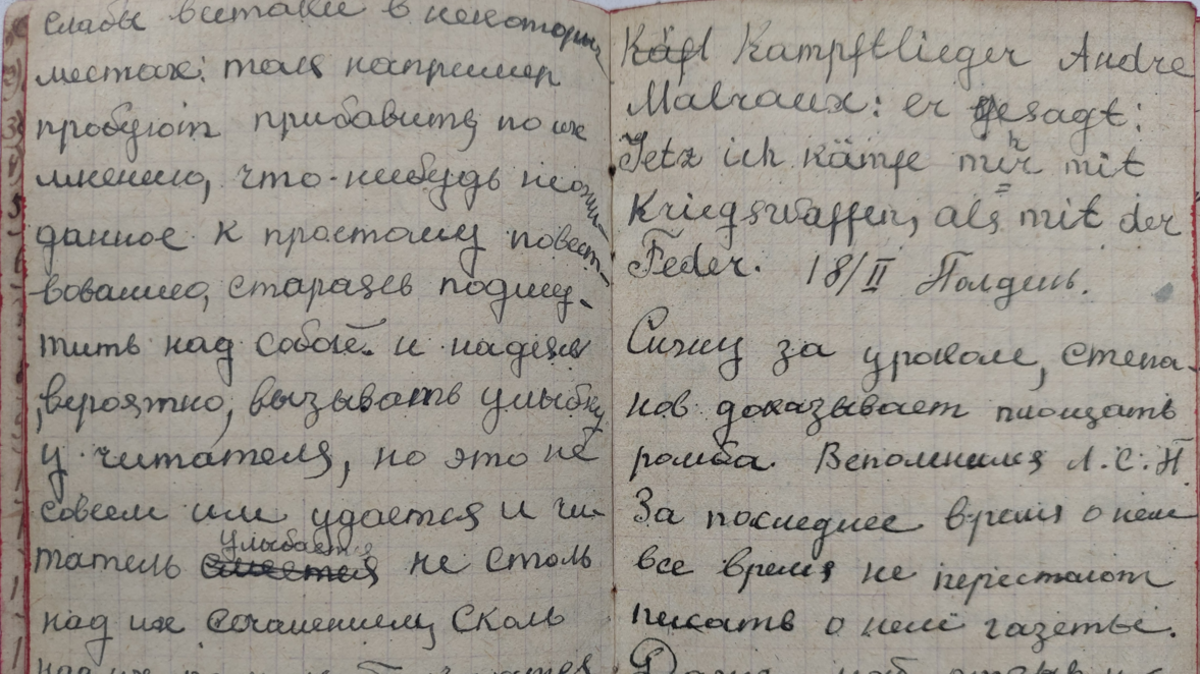 слабы всетаки в некоторых
местах: так например
пробуют прибавить по их
мнению, что-нибудь неожи-
данное к простому повест-
вованию, стараясь подшу-
тить над собой и надеясь
вероятно, вызывать улыбку
у читателя, но это не
совсем им удается и чи-
татель улыбается не столь
над их сочинением, сколь
Kampftlieger Andre
Malraux: er gesagt:
Jetz ich kämpfe mehr mit
Kriegswaffen, als mit der
Feder. 18/II Полдень.
Сижу за уроком, Степа-
нов доказывает площать
ромба. Вспомнился Л.С.П.
За последнее время о нем
все время не перестают
писать о нем газеты.